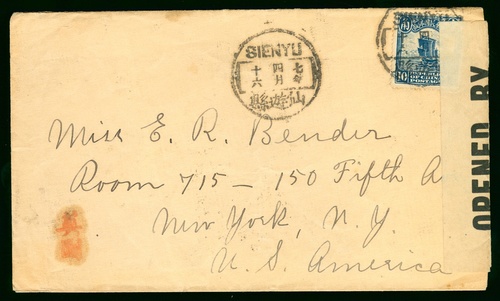 SIENYU
七年
四月
十六
仙遊縣
10
OPENED BY
Miss E. R. Bender
Room 715 - 150 Fifth A
New York, N. Y.
U. S. America